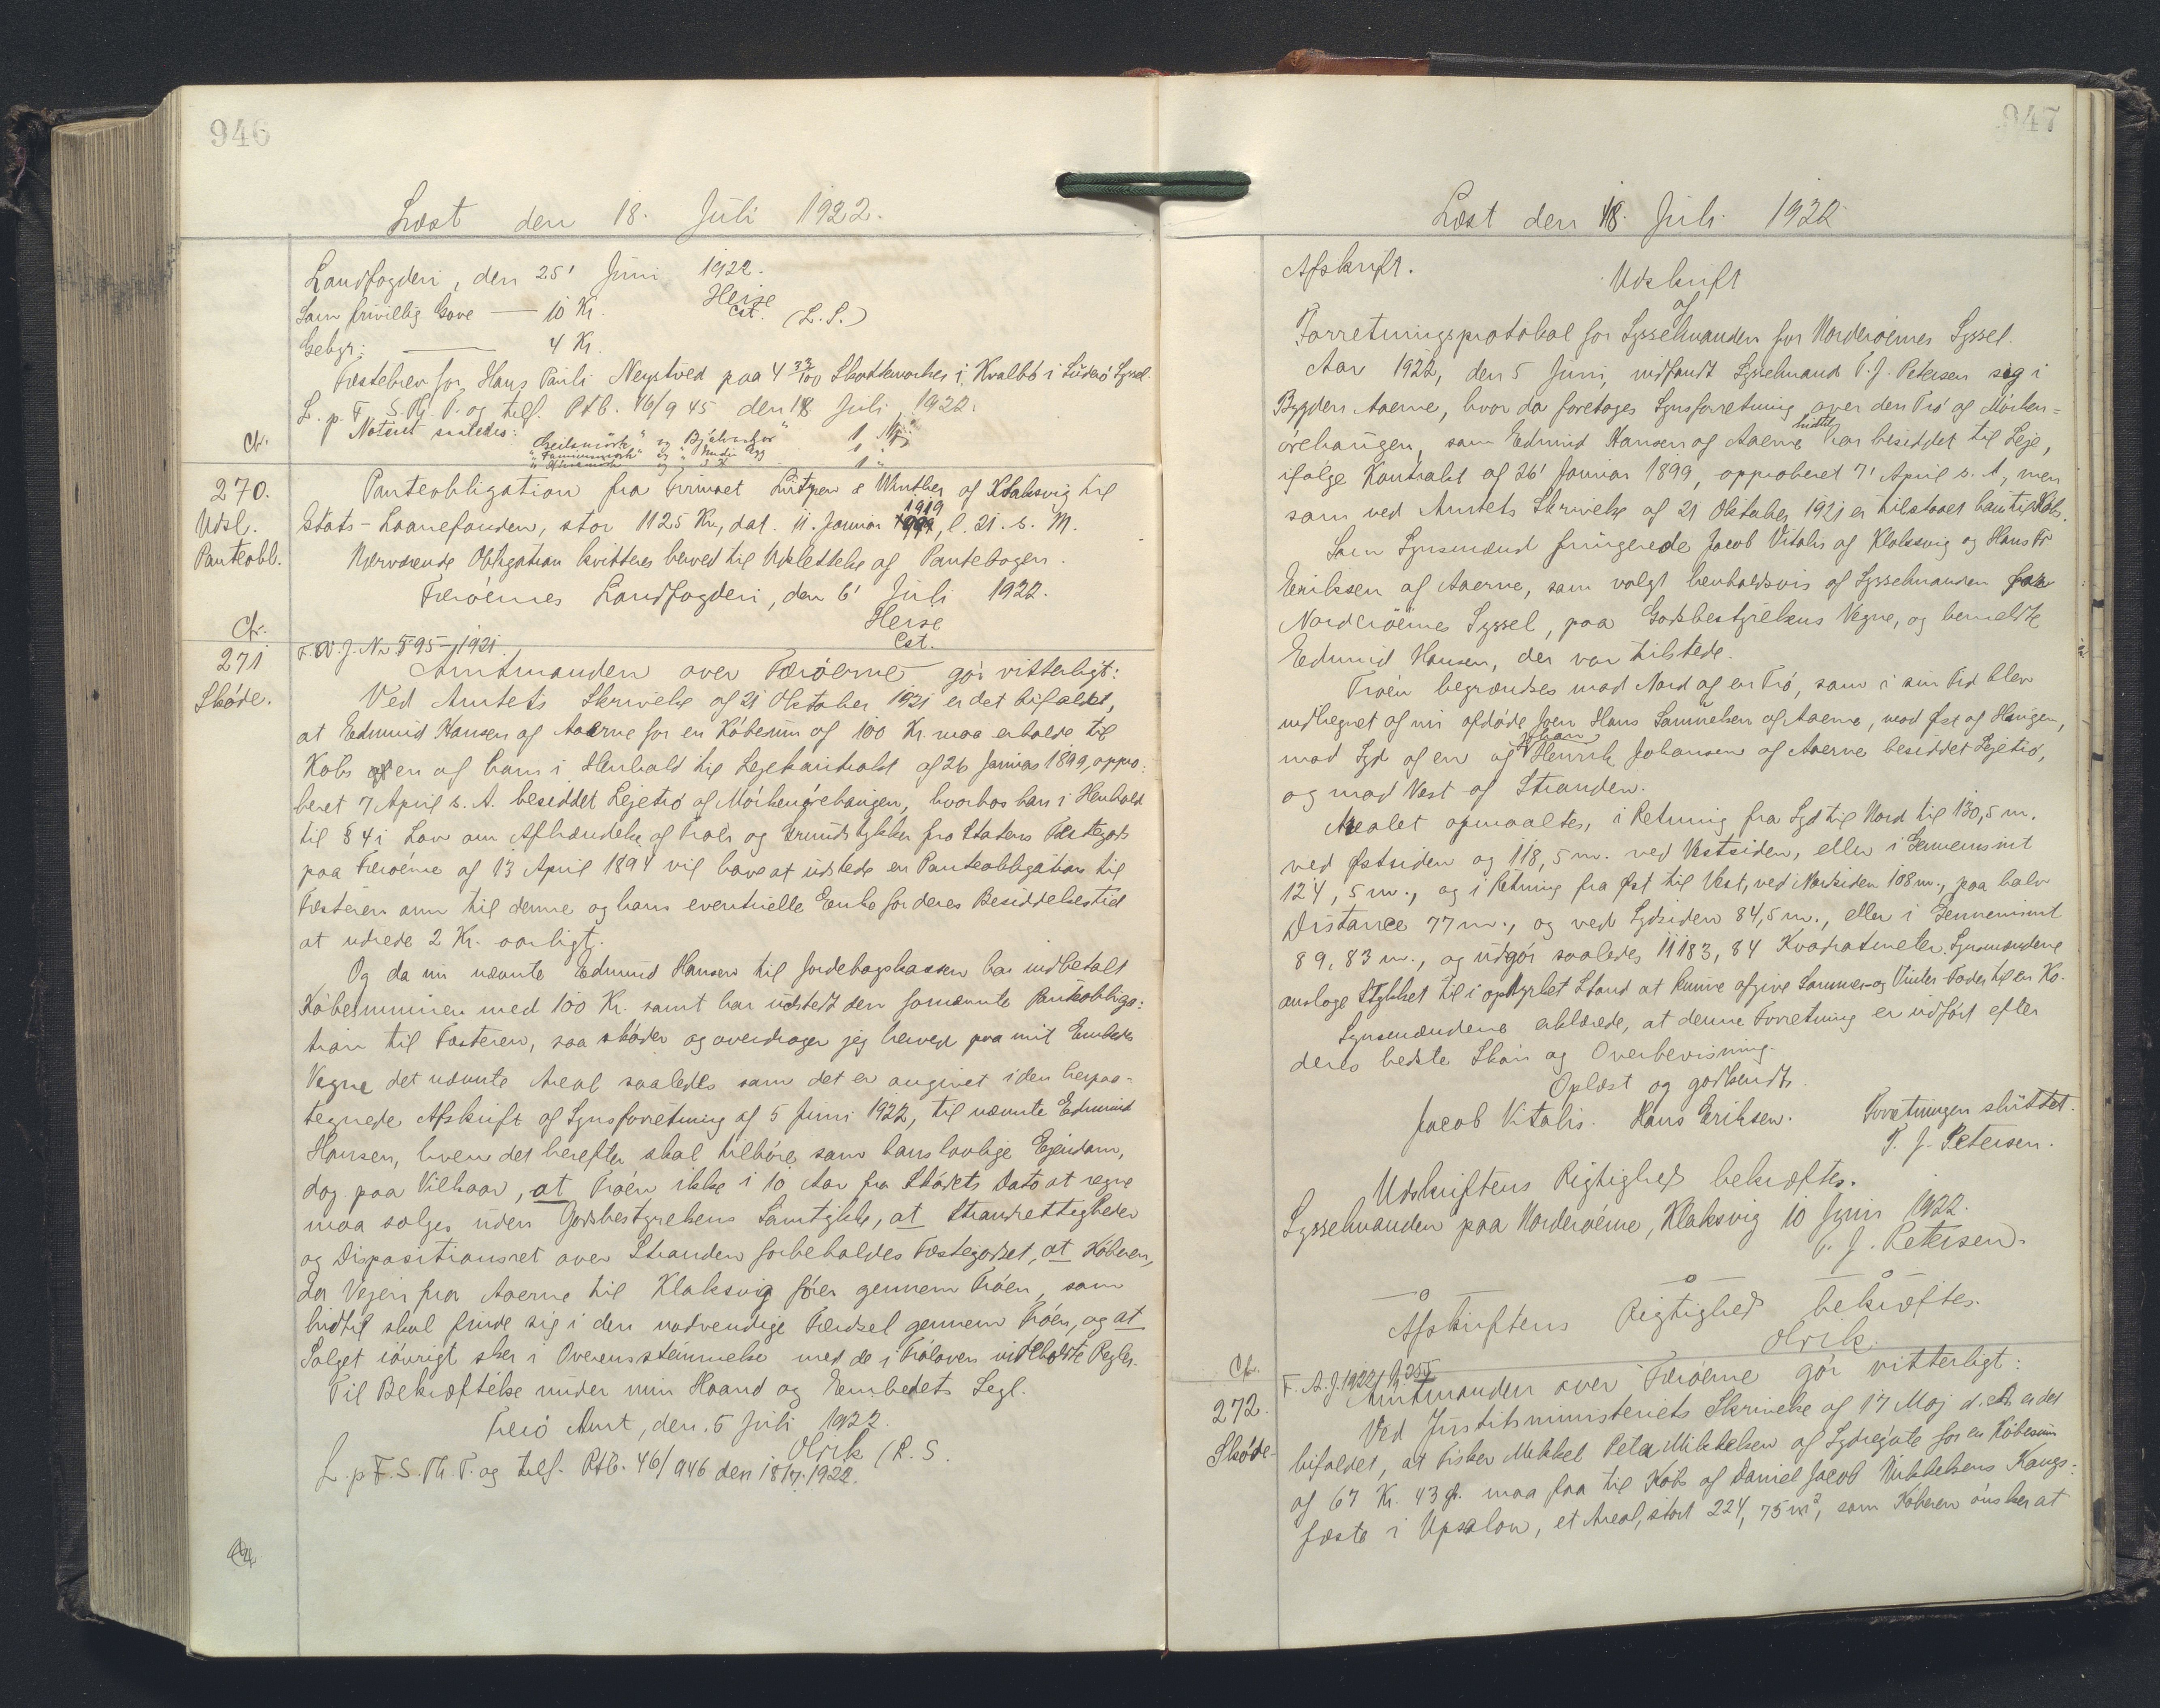 946
Læst den 18. Juli 1922.
Landfogderi, den 25' Juni 1922.
Heise
Cst. (L. S.)
Som frivillig Gave — 10 Kr.
Gebyr: — 4 Kr.
Fæstebrev for Hans Pauli Neystved paa 4 33/100 Skattemarker i Kvalbö i Suderö Syssel.
L. p. F. S. Th. T. og tilf. Ptb. 46/945 den 18 Juli 1922.
Noteret saaledes:
270.
Udsl.
Panteobl.
Panteobligation fra Firmaet Lützen & Winther af Klaksvig til
Stats-Laanefonden, stor 1125 Kr., dat. 11. Januar 1919, l. 21. s. M.
Nærværende Obligation kvitteres herved til Udslettelse af Pantebogen.
Færöernes Landfogderi, den 6' Juli 1922.
Heise
Cst.
271
Skøde.
Amtmanden over Færöerne gör vitterligt:
Ved Amtets Skrivelse af 21 Oktober 1921 er det bifaldet,
at Edmund Hansen af Aaerne for en Köbesum af 100 Kr. maa erholde til
Köbs en af ham i Henhold til Lejekontrakt af 26 Januar 1899, appro-
beret 7 April s. A. besiddet Lejetrö af Mörkenörehaugen, hvorhos han i Henhold
til § 4 i Lov om Afhændelse af Tröer og Grundstykker fra Statens Fæstegods
paa Færöerne af 13 April 1894 vil have at udstede en Panteobligation til
Fæsteren om til denne og hans eventuelle Enke for deres Besiddelsestid
at udrede 2 Kr. aarligt.
Og da nu nævnte Edmund Hansen til Jordebogskassen har indbetalt
Köbesummen med 100 Kr. samt har udstedt den fornævnte Panteobliga-
tion til Fæsteren, saa skøder og overdrager jeg herved paa mit Embeds
Vegne det nævnte Areal saaledes som det er angivet i den herpaa-
tegnede Afskrift af Synsforretning af 5 Juni 1922, til nævnte Edmund
Hansen, hvem det herefter skal tilhöre som hans lovlige Ejendom,
dog paa Vilkaar, at Tröen ikke i 10 Aar fra Skødets Dato at regne
maa sælges uden Godsbestyrelsens Samtykke, at Strandrettigheder
og Dispositionsret over Stranden forbeholdes Fæstegodset, at Köberen,
da Vejen fra Aaerne til Klaksvig förer gennem Tröen, som
hidtil skal finde sig i den nødvendige Færdsel gennem Tröen, og at
Salget iövrigt sker i Overensstemmelse med de i Tröloven indeholdte Regler.
Til Bekræftelse under min Haand og Embedets Segl.
Færö Amt, den 5 Juli 1922.
Olrik (L. S.
L. p. F. S. Th. T. og tilf. Ptb. 46/946 den 18/7. 1922.
947
Læst den 18. Juli 1922
Afskrift.
Udskrift
af
Forretningsprotokol for Sysselmanden for Norderöernes Syssel.
Aar 1922, den 5 Juni, indfandt Sysselmand P. J. Petersen sig i
Bygden Aaerne, hvor da foretoges Synsforretning over den Trö af Mörken-
örehaugen, som Edmund Hansen af Aaerne hidtil har besiddet til Leje,
ifølge Kontrakt af 26' Januar 1899, approberet 7' April s. A., men
som ved Amtets Skrivelse af 21 Oktober 1921 er tilstaaet ham til Köb.
Som Synsmænd fungerede Jacob Vitalis af Klaksvig og Hans
Eriksen af Aaerne, som valgt henholdsvis af Sysselmanden for
Norderöernes Syssel, paa Godsbestyrelsens Vegne, og bemeldte
Edmund Hansen, der var tilstede.
Tröen begrændses mod Nord af en Trö, som i sin Tid blev
indhegnet af nu afdöde Sven Hans Samuelsen af Aaerne, mod Øst af Haugen,
mod Syd af en af Johan Henrik Johansen af Aaerne besiddet Lejetrö,
og mod Vest af Stranden.
Arealet opmaaltes, i Retning fra Syd til Nord til 130,5 m.
ved Østsiden og 118,5 m. ved Vestsiden, eller i Gennemsnit
124,5 m., og i Retning fra Øst til Vest, ved Nordsiden 108 m., paa halv
Distance 77 m., og ved Sydsiden 84,5 m., eller i Gennemsnit
89,83 m., og udgör saaledes 11183,84 Kvadratmeter. Synsmændene
ansloge Stykket til i opdyrket Stand at kunne afgive Sommer- og Vinter-Foder til en Ko.
Synsmændene erklærede, at denne Forretning er udført efter
deres bedste Skøn og Overbevisning.
Oplæst og godkendt.
Jacob Vitalis. Hans Eriksen. Forretningen sluttet.
P. J. Petersen.
Udskriftens Rigtighed bekræftes.
Sysselmanden paa Norderöerne, Klaksvig 10 Juni 1922.
P. J. Petersen.
Afskriftens Rigtighed bekræftes.
Olrik.
272.
Skøde.
Amtmanden over Færöerne gör vitterligt:
Ved Justitsministeriets Skrivelse af 17 Maj d. A. er det
bifaldet, at Fisker Mikkel Peter Mikkelsen af Sydregöte for en Köbesum
af 67 Kr. 43 Ø. maa faa til Köbs af Daniel Jacob Mikkelsens Kongs-
fæste i Upsalon, et Areal, stort 224,75 m², som Köberen önsker at